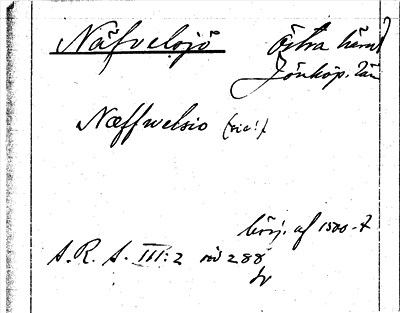 Näfvelsjö Östra härad
Jönköp. län
Næffwelsio (sic!).
börj. af 1500-t
S.R.A. III:2 sid 288